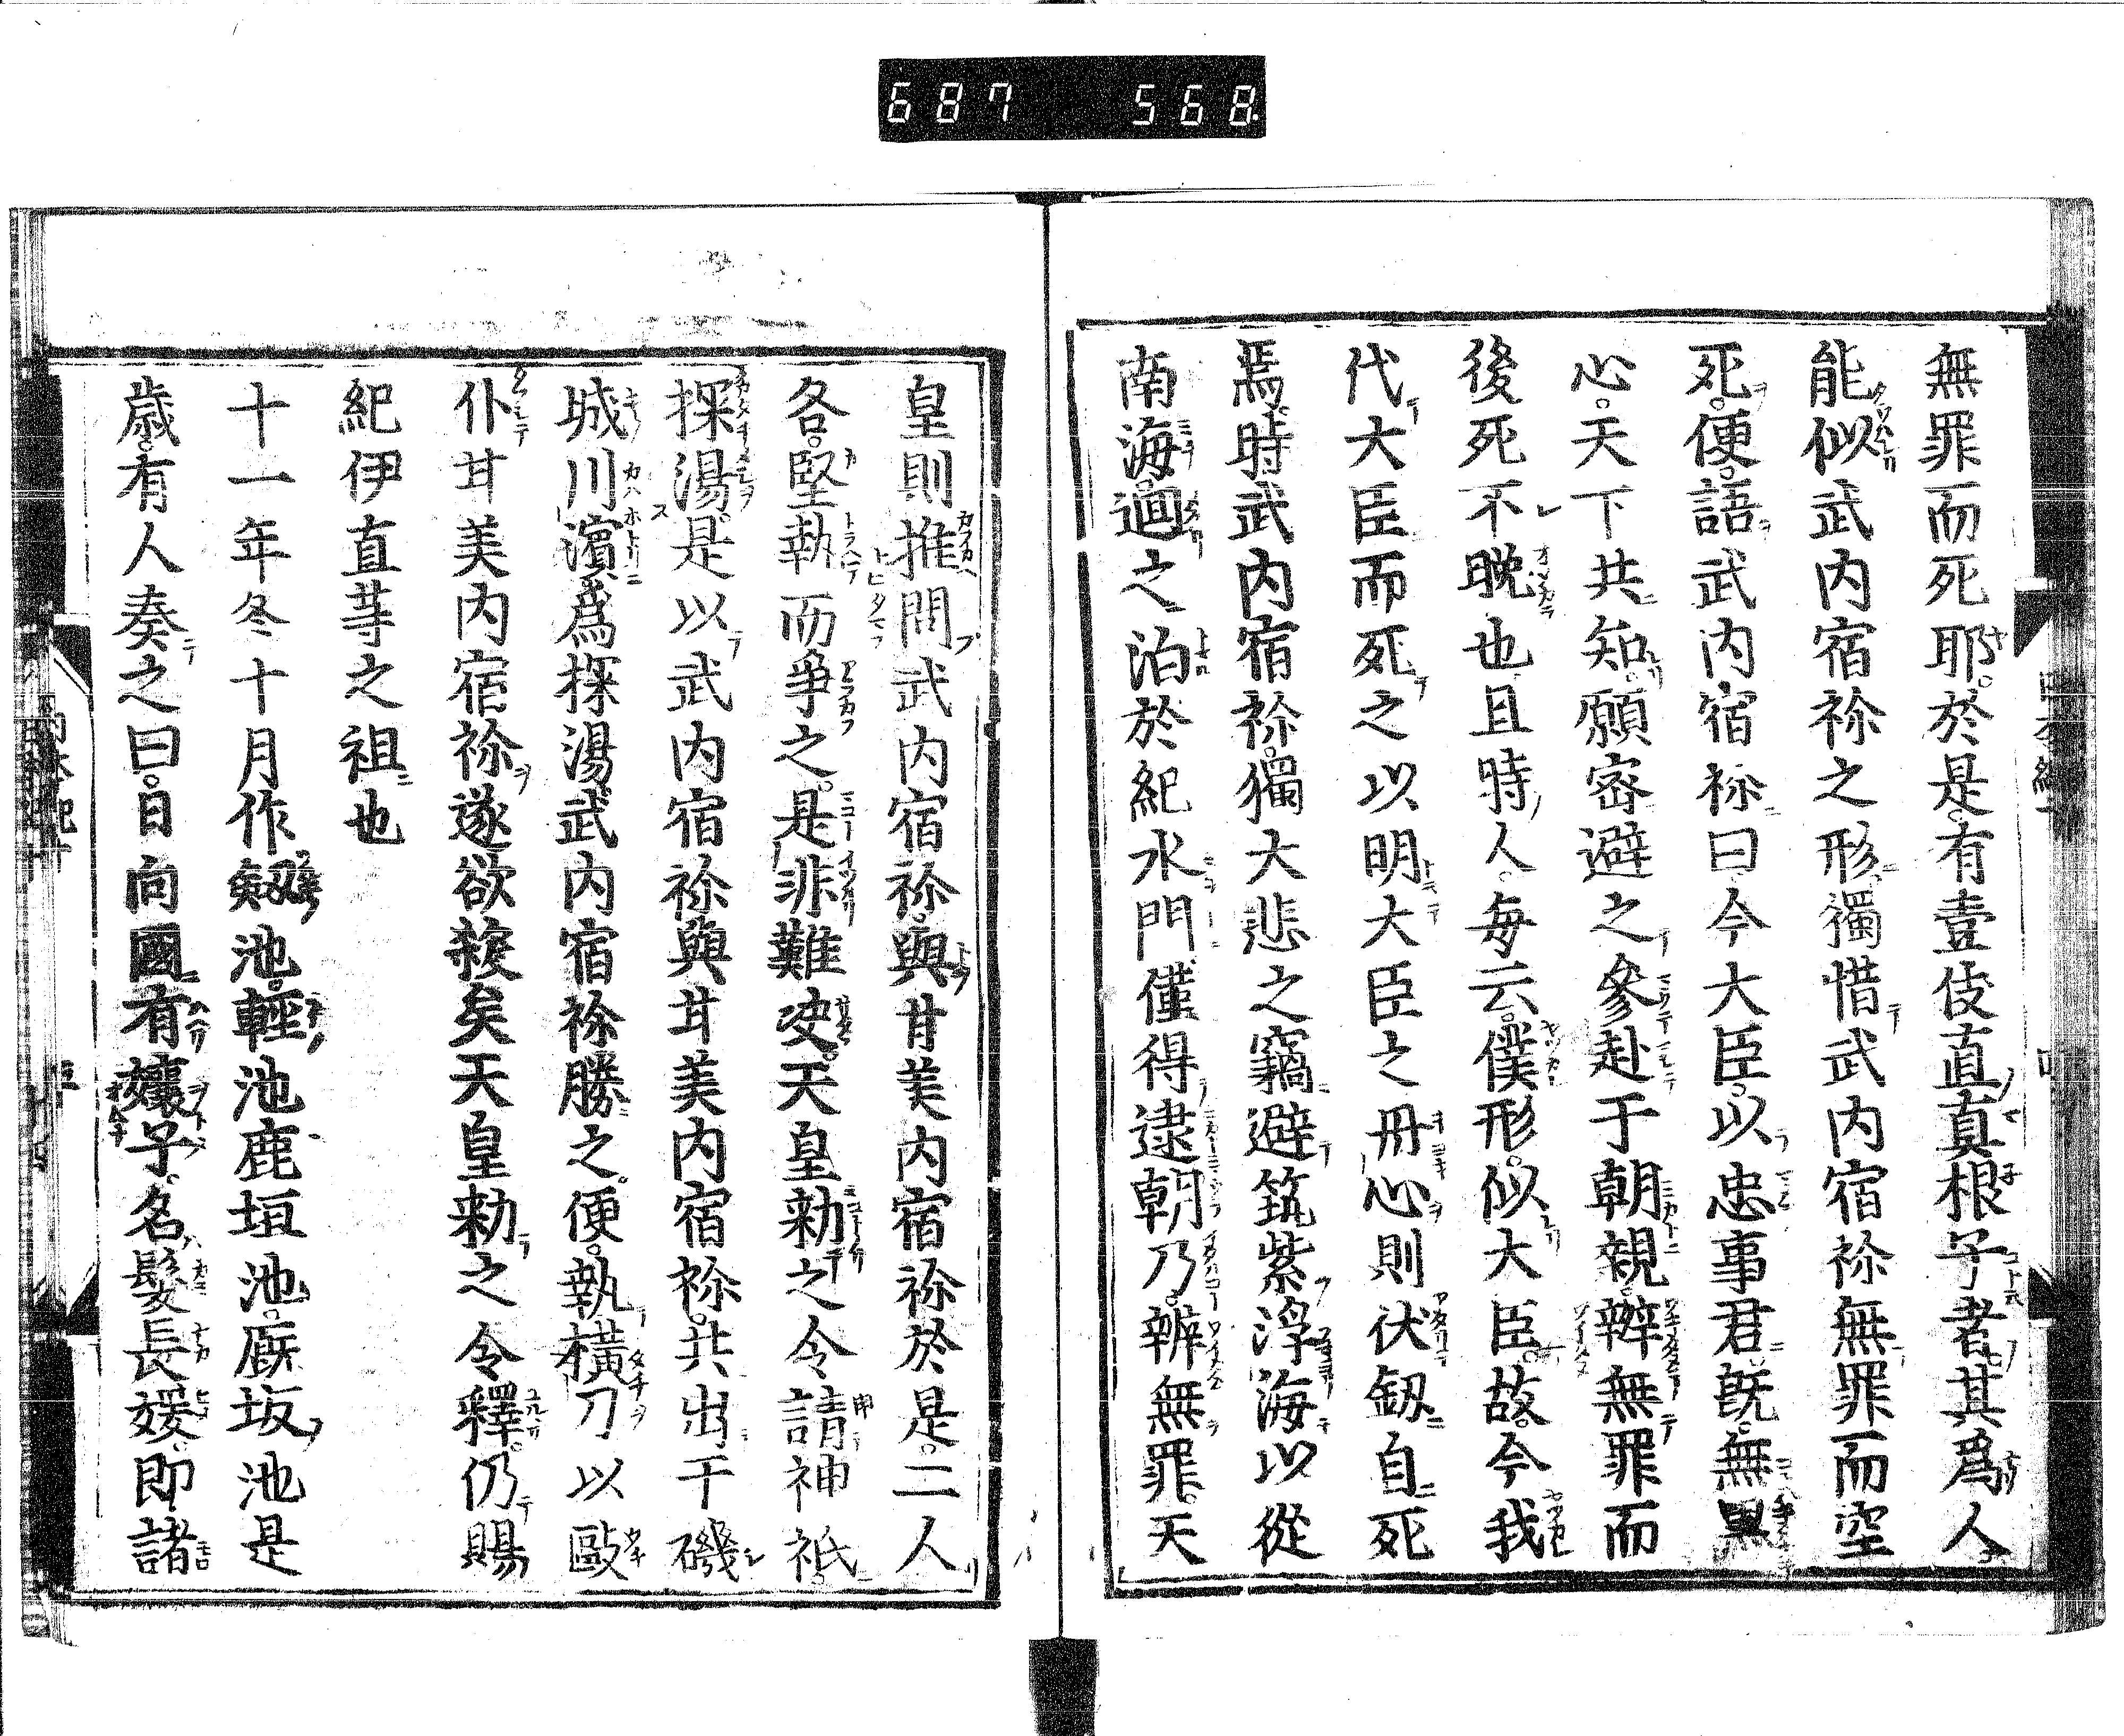 687 568
無罪而死耶於是有壹伎直真根子者其爲人
能似武内宿祢之形獨惜武内宿祢無罪而空
死便語武内宿祢曰今大臣以忠事君既無黒
心天下共知願密避之參赴于朝親辨無罪而
後死不晩也且時人毎云僕形似大臣故今我
代大臣而死之以明大臣之丹心則伏劔自死
焉時武内宿祢獨大悲之竊避筑紫浮海以從
南海廻之泊於紀水門僅得逮朝乃辨無罪天
皇則推問武内宿祢與甘美内宿祢於是二人
各堅執而爭之是非難决天皇勅之令請神祇
探湯是以武内宿祢與甘美内宿祢共出于磯
城川濱爲探湯武内宿祢勝之便執橫刀以毆
仆甘美内宿祢遂欲殺矣天皇勅之令釋仍賜
紀伊直等之祖也
十一年冬十月作劔池輕池鹿垣池厩坂池是
歳有人奏之曰日向國有孃子名髮長媛即諸